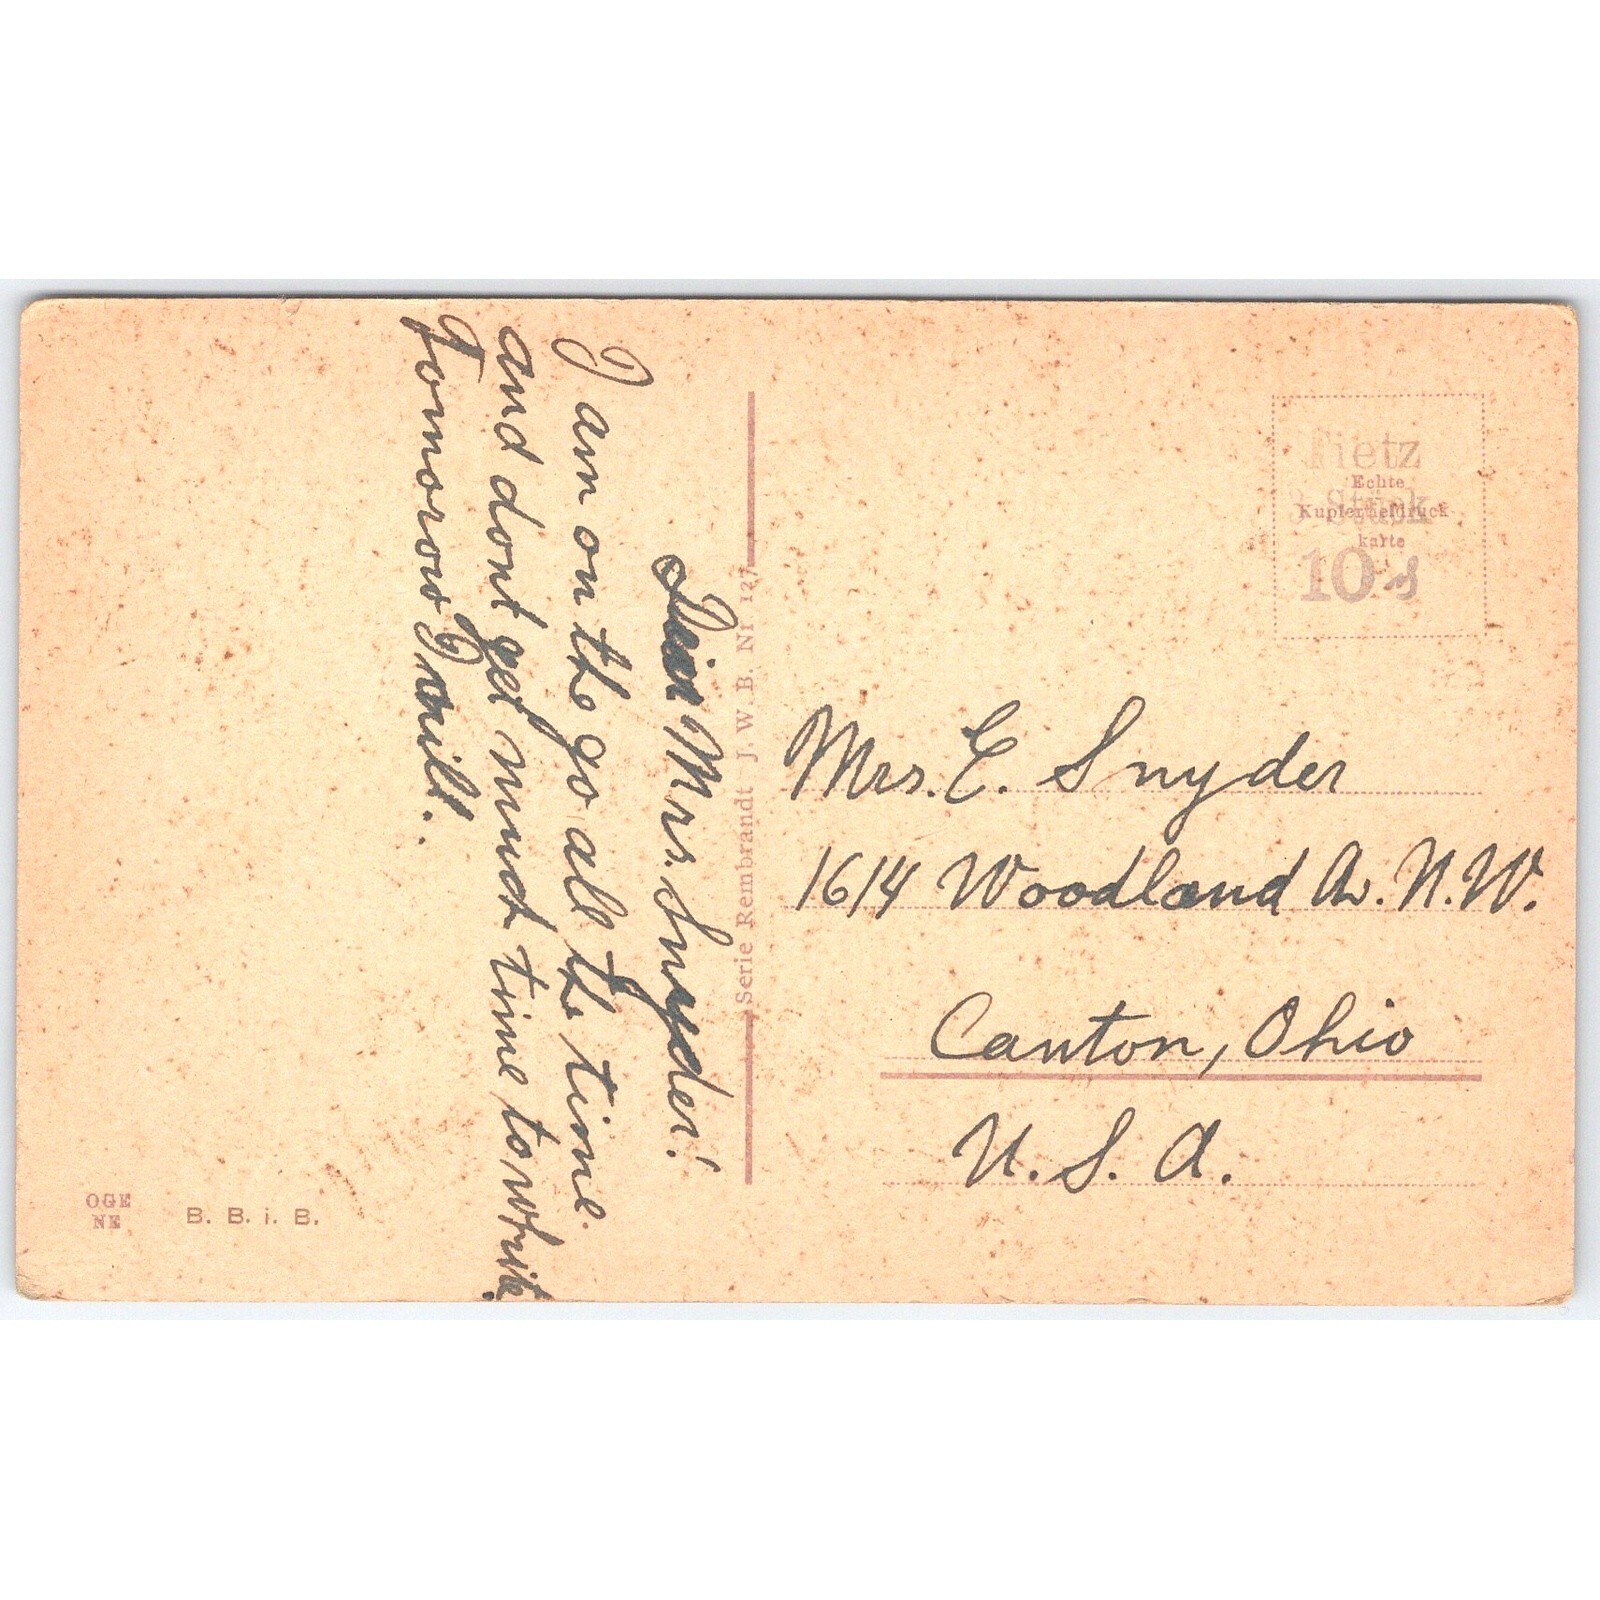 Dear Mrs. Snyder!
I am on the go all the time
and dont get much time to write.
Tomorow I will.
Serie Rembrandt J. W. B. Nr 127
Tietz
Echte
3 Stück
Kupfertiefdruck
karte
10 ₰
Mrs. E. Snyder
1614 Woodland Av. N.W.
Canton, Ohio
U. S. A.
OGE
NE
B. B. i. B.